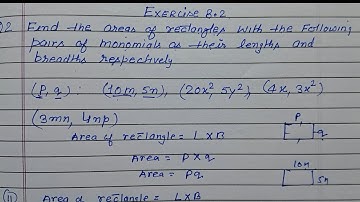 Exercise 8.2
Q2 Find the areas of rectangles with the following
pairs of monomials as their lengths and
breadths respectively
(p, q) : (10m, 5n), (20x², 5y²), (4x, 3x²)
(3mn, 4np)
Area of rectangle = L×B
P,
q
Area = P×q
Area = Pq
10m
5n
(ii) Area of rectangle = L×B